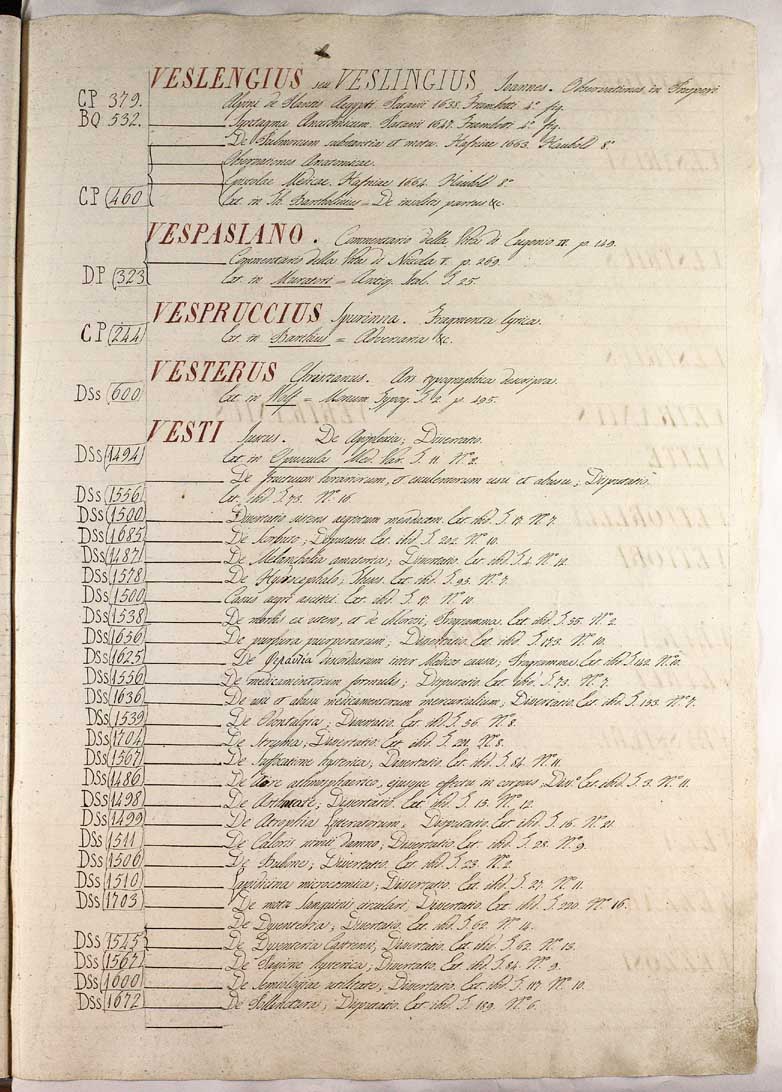 VESLENGIUS seu VESLINGIUS Joannes. Observationes in Prosperi
CP 379. Alpini de Plantis Aegypti. Patavii 1638. Frambotti 4.° fig.
BQ 532. Syntagma Anatomicum. Patavii 1647. Frambotti 4.° fig.
De Pulmonum substantia et motu. Hafniae 1663. Haubold 8.°
Observationes Anatomicae.
Epistolae Medicae. Hafniae 1664. Haubold 8.°
CP (460 Ext. in Th. Bartholinus = De insolitis partus &c.
VESPASIANO. Commentario della Vita di Eugenio IV. p. 149.
Commentario della Vita di Niccola V. p. 269.
DP (323 Ext. in Muratori = Antiq. Ital. T. 25.
VESPRUCCIUS Spurinna. Fragmenta lyrica.
CP (244 Ext. in Barthius = Adversaria &c.
VESTERUS Christianus. Ars typographica descripta.
DSs (600 Ext. in Wolf = Monum. Typog. T. 2. p. 495.
VESTI Justus. De Apoplexia; Dissertatio.
DSs 1494 Ext. in Opuscula Med. Var. T. 11. N.° 2.
De fructuum horariorum, et esculentorum usu et abusu; Disputatio.
DSs 1556 Ext. ibid. T. 73. N.° 16.
DSs 1500 Dissertatio sistens aegrotum Ext. ibid. T. 17. N.° 7.
DSs 1685 De Scorbuto; Disputatio. Ext. ibid. T. 202. N.° 10.
DSs 1487 De Melancholia amatoria; Dissertatio. Ext. ibid. T. 4. N.° 12.
DSs 1578 De Hydrocephalo; Theses. Ext. ibid. T. 95. N.° 7.
DSs 1500 Casus aegri ascitici. Ext. ibid. T. 17. N.° 10.
DSs 1538 De morbis ex utero, et de Programma. Ext. ibid. T. 55. N.° 2.
DSs 1656 De purpura puerperarum; Dissertatio. Ext. ibid. T. 173. N.° 10.
DSs 1625 De discordiarum inter Medicos causa; Programma. Ext. ibid. T. 142. N.° 10.
DSs 1556 De medicamentorum formulis; Disputatio. Ext. ibid. T. 73. N.° 7.
DSs 1636 De usu et abusu medicamentorum mercurialium; Dissertatio. Ext. ibid. T. 153. N.° 7.
DSs 1539 De Nostalgia; Dissertatio. Ext. ibid. T. 56. N.° 8.
DSs 1704 De Struma; Dissertatio. Ext. ibid. T. 221. N.° 8.
DSs 1567 De Suffocatione hysterica; Dissertatio. Ext. ibid. T. 84. N.° 11.
DSs 1486 De Aere athmosphaerico, ejusque effectu in corpus; Diss.° Ext. ibid. T. 3. N.° 11.
DSs 1498 De Dissertatio. Ext. ibid. T. 15. N.° 12.
DSs 1499 De Atrophia litteratorum; Disputatio. Ext. ibid. T. 16. N.° 21.
DSs 1511 De Caloris nimii damno; Dissertatio. Ext. ibid. T. 28. N.° 9.
DSs 1506 De Bubone; Dissertatio. Ext. ibid. T. 23. N.° 2.
DSs 1510 Lapidicina microcosmica; Dissertatio. Ext. ibid. T. 27. N.° 11.
DSs 1703 De motu sanguinis circulari; Dissertatio. Ext. ibid. T. 220. N.° 16.
De Dysenteria; Dissertatio. Ext. ibid. T. 62. N.° 14.
DSs 1545 De Dysenteria Castrensi; Dissertatio. Ext. ibid. T. 62. N.° 13.
DSs 1567 De hysterica; Dissertatio. Ext. ibid. T. 84. N.° 9.
DSs 1600 De Semiologiae utilitate; Dissertatio. Ext. ibid. T. 117. N.° 10.
DSs 1672 De Disputatio. Ext. ibid. T. 189. N.° 6.